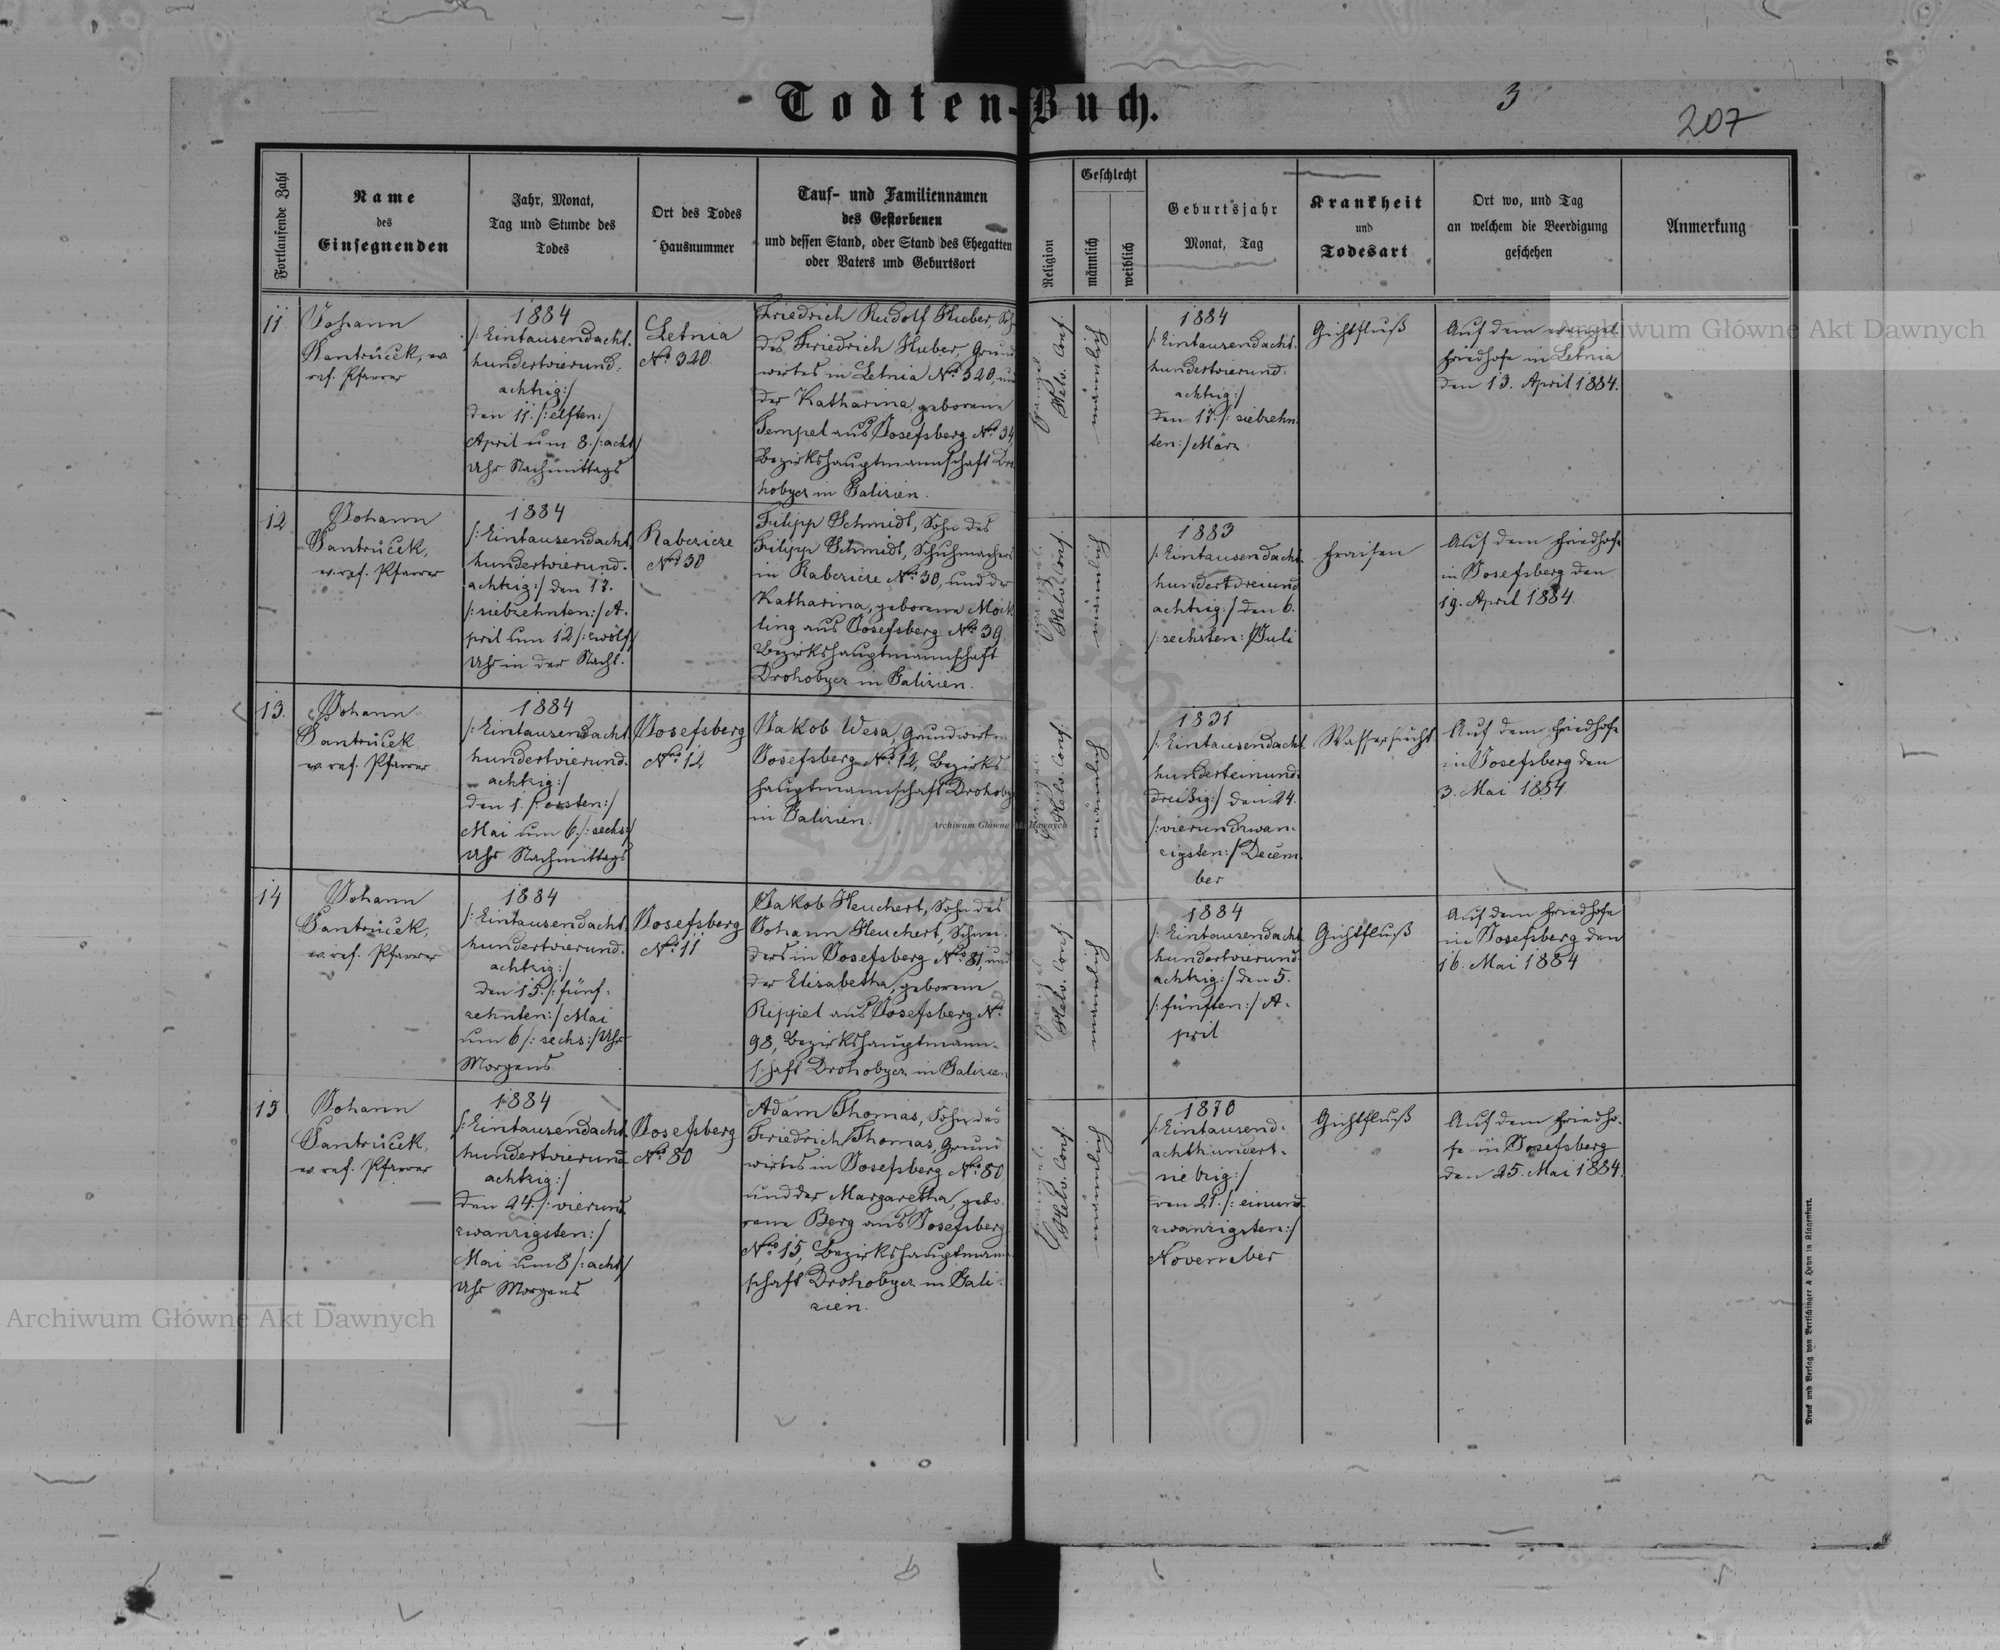 Todten-Buch.
3
207
Fortlaufende Zahl
Name
des
Einsegnenden
Jahr, Monat,
Tag und Stunde des
Todes
Ort des Todes
Hausnummer
Tauf- und Familiennamen
des Gestorbenen
und dessen Stand, oder Stand des Ehegatten
oder Vaters und Geburtsort
Religion
Geschlecht
männlich
weiblich
Geburtsjahr
Monat, Tag
Krankheit
und
Todesart
Ort wo, und Tag
an welchem die Beerdigung
geschehen
Anmerkung
11
Johann
Santrůček, ev.
ref. Pfarrer
1884
/: Eintausendacht-
hundertvierund-
achtzig :/
den 11. /: elften :/
April um 8. /: acht :/
Uhr Nachmittags
Letnia
No 320
Friedrich Rudolf Huber, Soh
des Friedrich Huber, Grund
wirtes in Letnia No 320, und
der Katharina, geborene
Tempel aus Josefsberg No 34,
Bezirkshauptmannschaft Dro
hobycz in Galizien.
Evangel.
Helv. Conf.
männlich
1884
/: Eintausendacht-
hundertvierund-
achtzig :/
den 17. /: siebzehn-
ten :/ März
Gichtfluß
Auf dem evangel.
Friedhofe in Letnia
den 13. April 1884.
12
Johann
Santrůček,
ev. ref. Pfarrer
1884
/: Eintausendacht-
hundertvierund-
achtzig :/ den 17.
/: siebzehnten :/ A-
pril um 12 /: zwölf :/
Uhr in der Nacht.
Rabczice
No 30
Filipp Schmidt, Sohn des
Filipp Schmidt, Schuhmachers
in Rabczice No 30, und der
Katharina, geborene Möck
ling aus Josefsberg No 39
Bezirkshauptmannschaft
Drohobycz in Galizien.
Evangel.
Helv. Conf.
männlich
1883
/: Eintausendacht-
hundertdreiund
achtzig :/ den 6.
/: sechsten :/ Juli
Fraisen
Auf dem Friedhofe
in Josefsberg den
19. April 1884.
13.
Johann
Santrůček
ev. ref. Pfarrer
1884
/: Eintausendacht
hundertvierund-
achtzig :/
den 1. /: ersten :/
Mai um 6 /: sechs :/
Uhr Nachmittags
Josefsberg
No 12
Jakob Wesa, Grundwirt in
Josefsberg No 12, Bezirks
hauptmannschaft Drohoby
in Galizien.
Evangel.
Helv. Conf.
männlich
1831
/: Eintausendacht-
hunderteinund-
dreißig :/ den 24.
/: vierundzwan-
zigsten :/ Decem-
ber
Wassersucht
Auf dem Friedhofe
in Josefsberg den
3. Mai 1884.
14
Johann
Santrůček,
ev. ref. Pfarrer
1884
/: Eintausendacht-
hundertvierund-
achtzig :/
den 15. /: fünf-
zehnten :/ Mai
um 6 /: sechs :/ Uhr
Morgens
Josefsberg
No 11
Jakob Heuchert, Sohn des
Johann Heuchert, Schnei-
ders in Josefsberg No 81, und
der Elisabetha, geborene
Rippel aus Josefsberg No
98, Bezirkshauptmann-
schaft Drohobycz in Galizien
Evangel.
Helv. Conf.
männlich
1884
/: Eintausendacht-
hundertvierund
achtzig :/ den 5.
/: fünften :/ A-
pril
Gichtfluß
Auf dem Friedhofe
in Josefsberg den
16. Mai 1884
15
Johann
Santrůček,
ev. ref. Pfarrer
1884
/: Eintausendacht-
hundertvierund
achtzig :/
den 24. /: vierund
zwanzigsten :/
Mai um 8 /: acht :/
Uhr Morgens
Josefsberg
No 80
Adam Thomas, Sohn des
Friedrich Thomas, Grund
wirtes in Josefsberg No 80
und der Margaretha, gebo-
rene Berg aus Josefsberg
No 15, Bezirkshauptmann
schaft Drohobycz in Gali-
zien.
Evangel.
Helv. Conf.
männlich
1870
/: Eintausend-
achthundert-
siebzig :/
den 21. /: einund
zwanzigsten :/
November
Gichtfluß
Auf dem Friedho-
fe in Josefsberg
den 25. Mai 1884.
Druck und Verlag von Bertschinger & Heyn in Klagenfurt.
Archiwum Główne Akt Dawnych
Archiwum Główne Akt Dawnych
Archiwum Główne Akt Dawnych